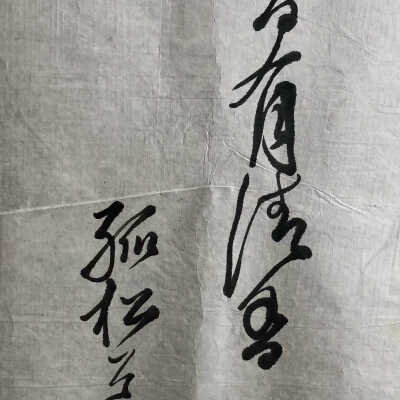 有清香
孤松